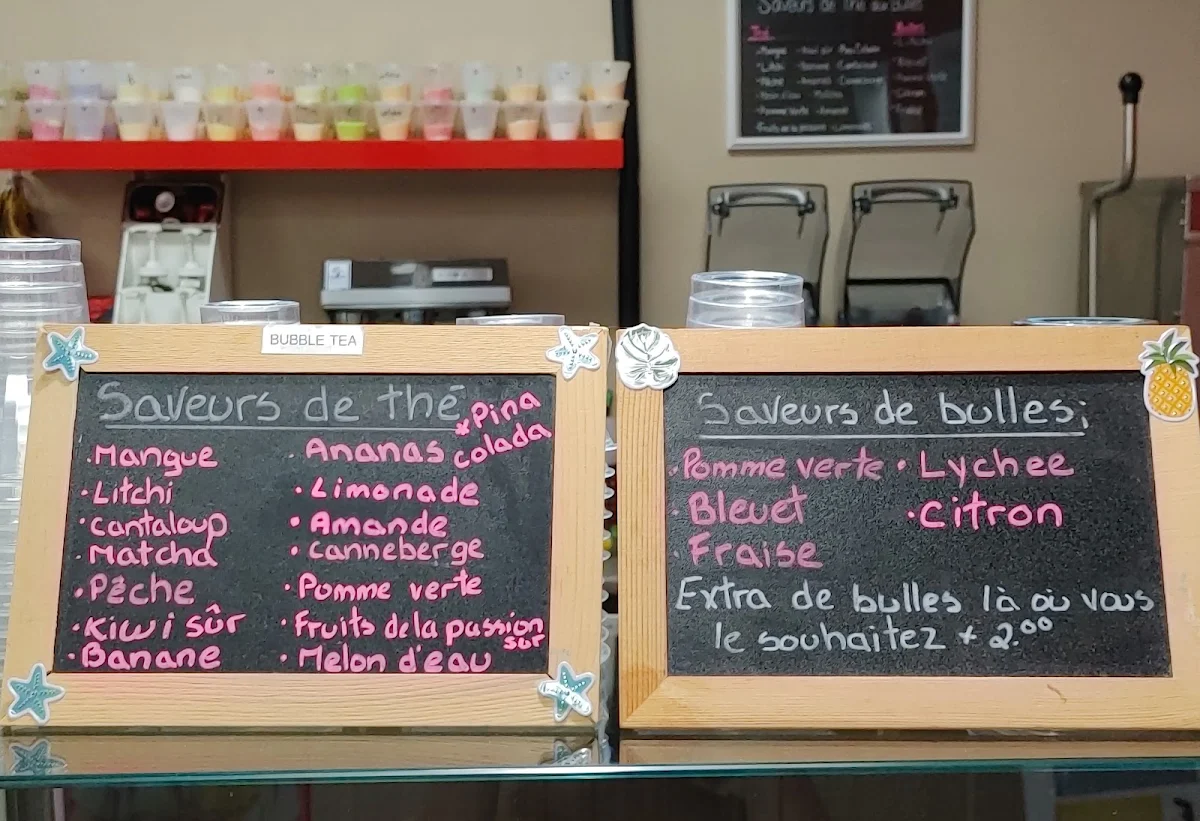 Saveurs de thé aux bulles
Thé
BUBBLE TEA
Saveurs de thé
*Pina
colada
.Mangue
.Litchi
.cantaloup
.Matcha
.Pêche
.Kiwi sûr
.Banane
.Ananas
.Limonade
.Amande
.canneberge
.Pomme verte
.Fruits de la passion
sur
.Melon d'eau
Saveurs de bulles;
.Pomme verte
.Bleuet
.Fraise
.Lychee
.citron
Extra de bulles là où vous
le souhaitez + 2.00